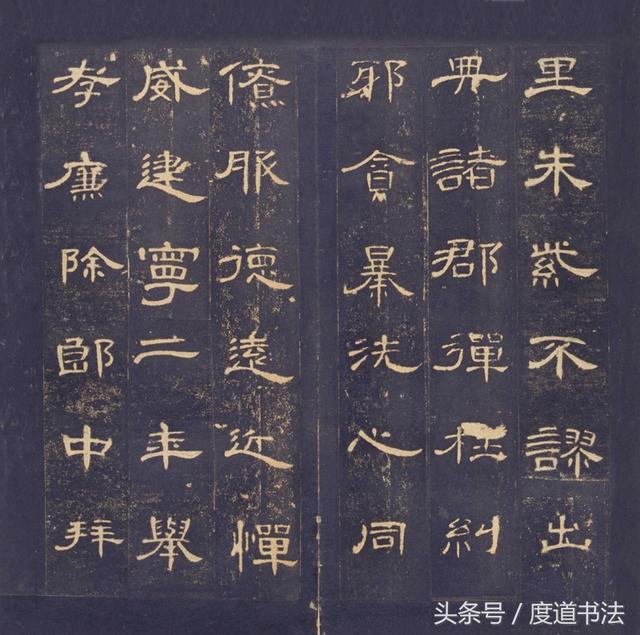 里朱紫不謬出
典諸郡彈枉糾
邪貪暴洗心同
僚服德遠近憚
威建寧二年舉
孝廉除郎中拜
头条号 / 度道书法